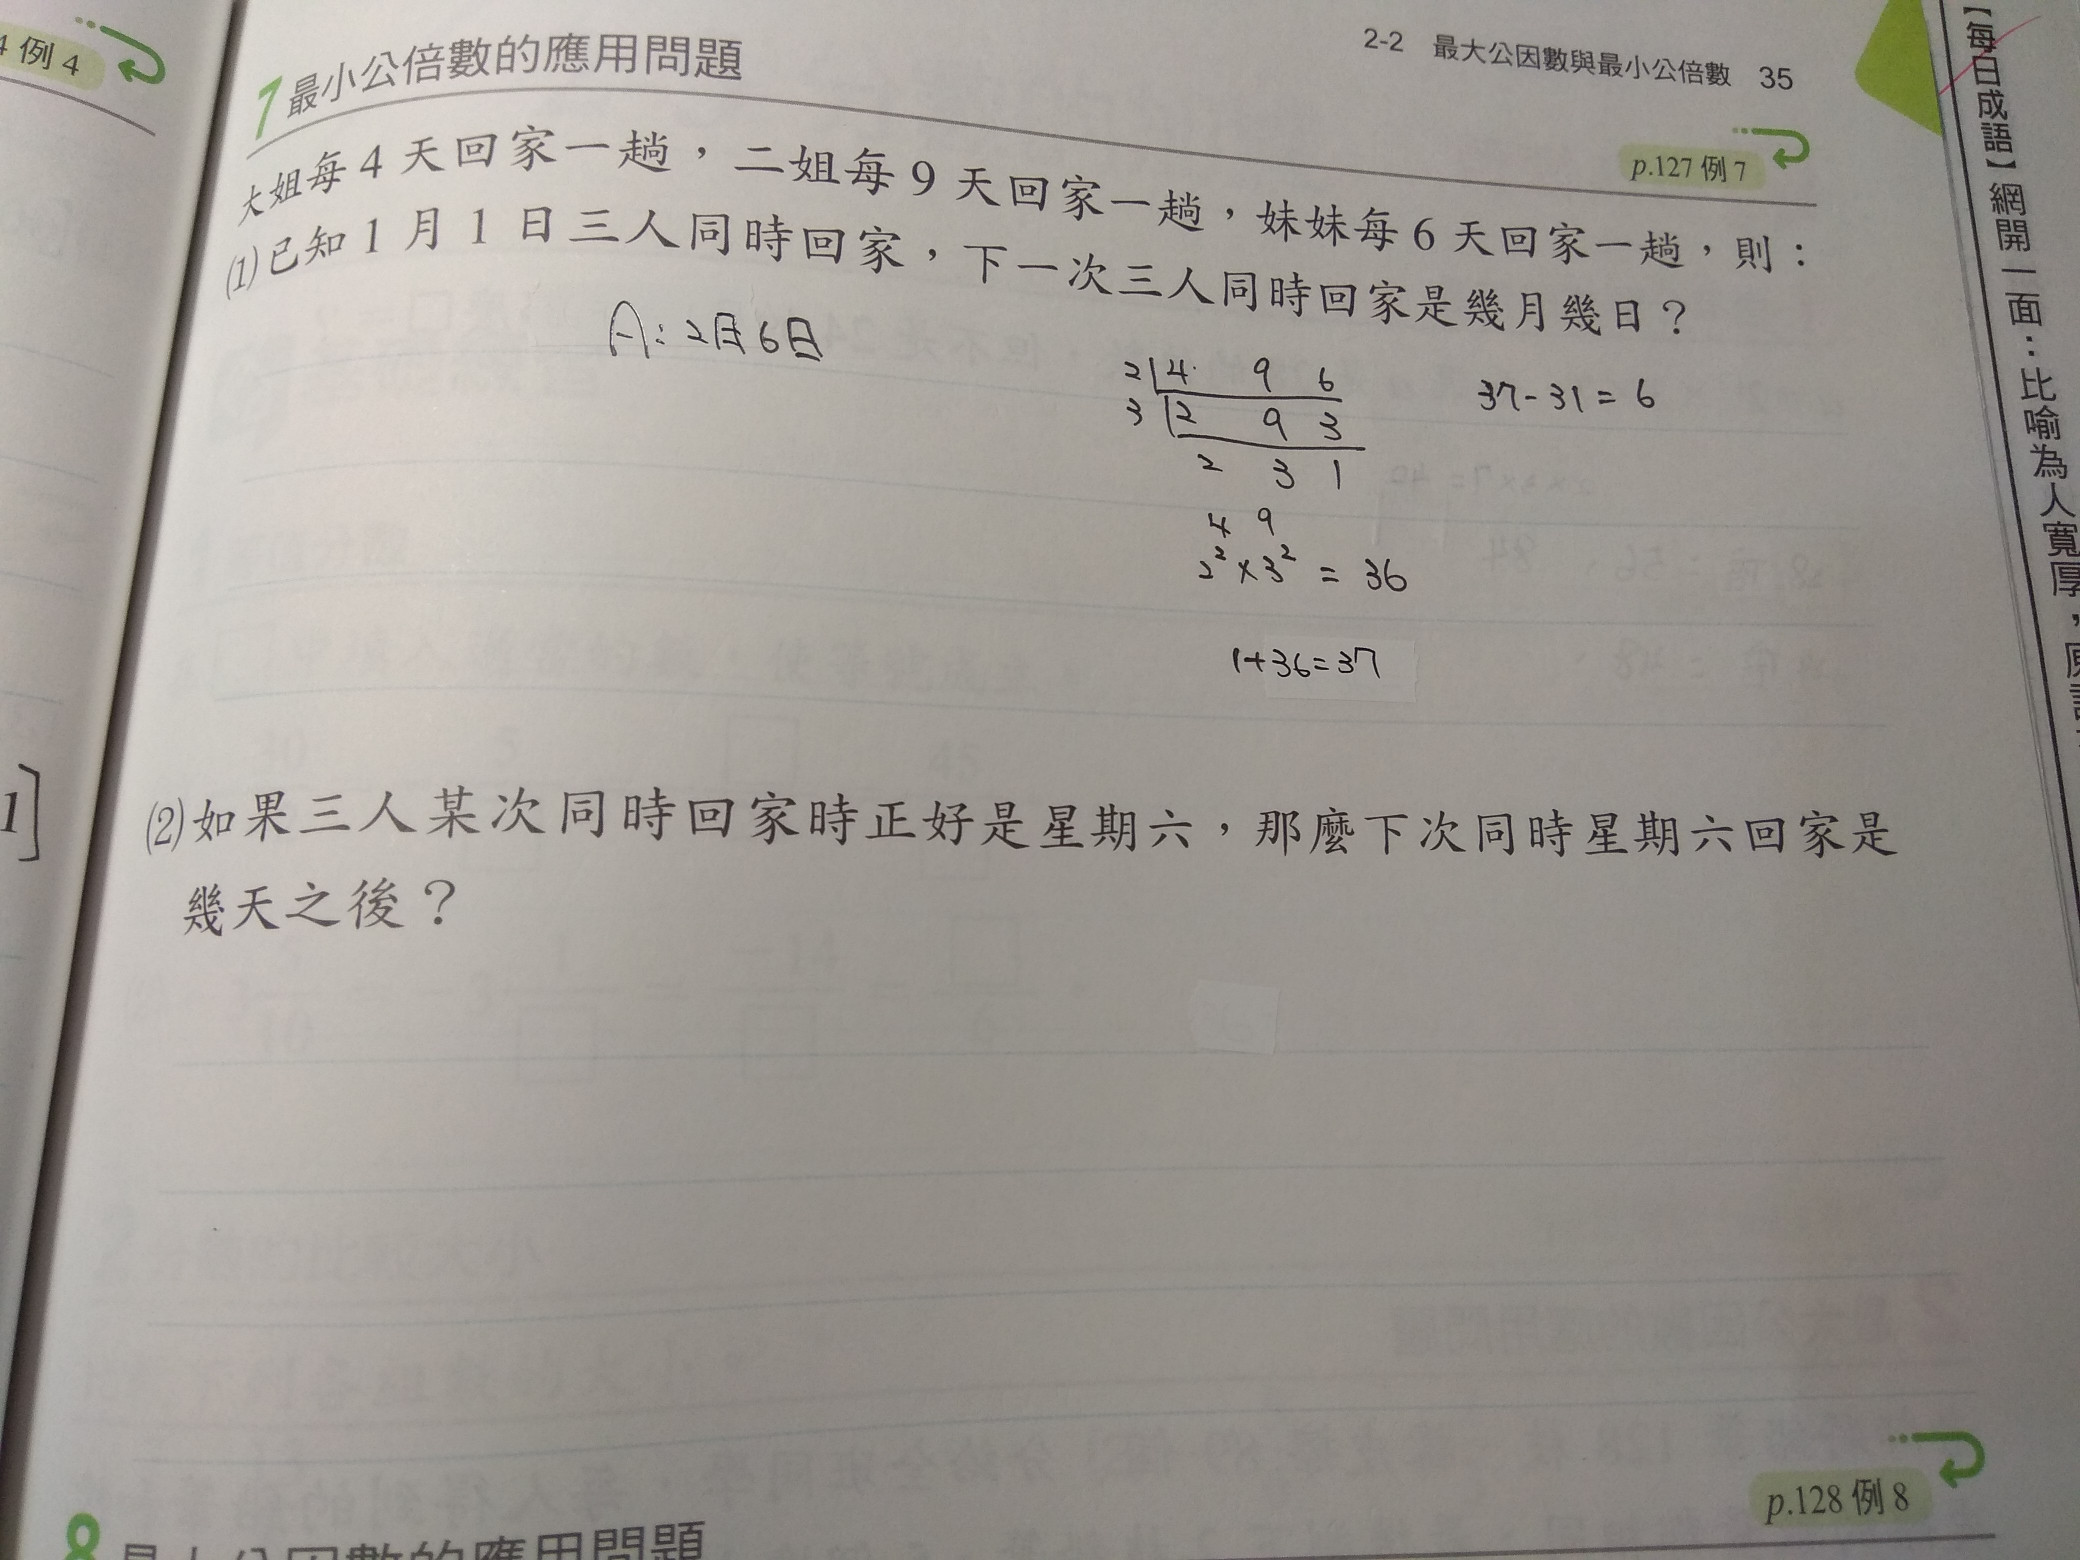 4 例 4
2-2 最大公因數與最小公倍數 35
7 最小公倍數的應用問題
p.127 例 7
大姐每 4 天回家一趟，二姐每 9 天回家一趟，妹妹每 6 天回家一趟，則：
(1)已知 1 月 1 日三人同時回家，下一次三人同時回家是幾月幾日？
A: 2月6日
2 4 9 6
3 2 9 3
2 3 1
37-31=6
4 9
2²×3² = 36
1+36=37
(2)如果三人某次同時回家時正好是星期六，那麼下次同時星期六回家是
幾天之後？
1]
p.128 例 8
8
公因數的應用問題
【每日成語】網開一面：比喻為人寬厚，